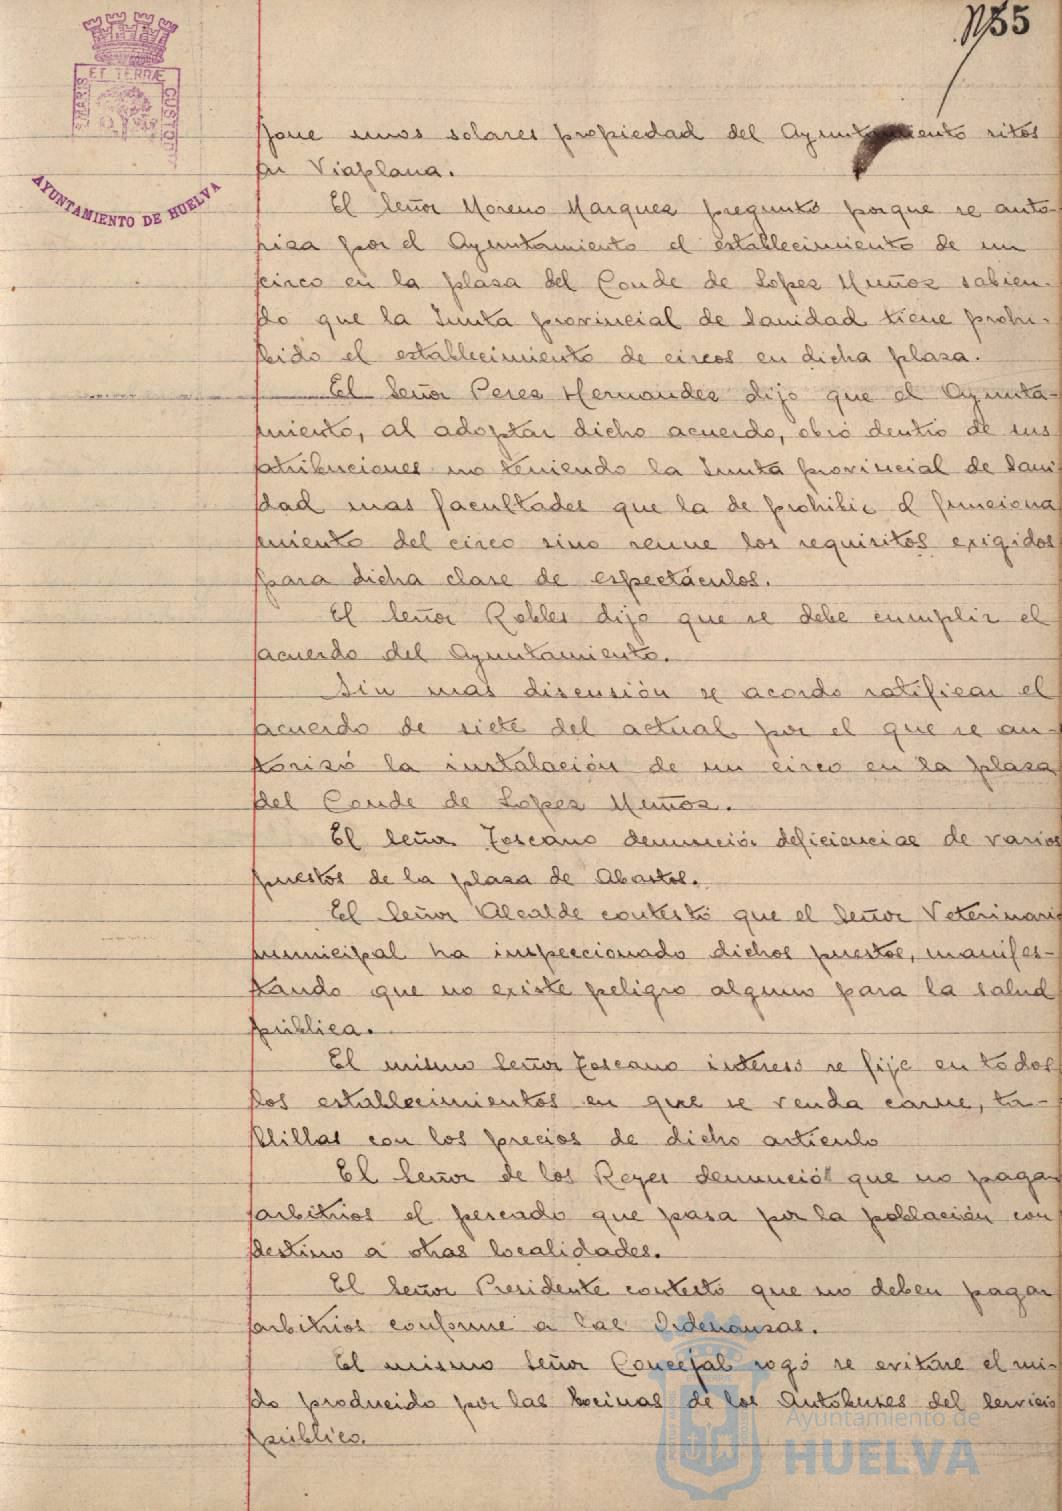 55
ET TERRÆ
MARIS
CUSTODIT
AYUNTAMIENTO DE HUELVA
fone unos solares propiedad del Ayuntamiento sitos
en Viaplana.
El Señor Moreno Marquez preguntó porque se auto-
riza por el Ayuntamiento el establecimiento de un
circo en la plaza del Conde de Lopez Muñoz sabien-
do que la Junta provincial de Sanidad tiene prohi-
bido el establecimiento de circos en dicha plaza.
El Señor Perez Hernandez dijo que el Ayunta-
miento, al adoptar dicho acuerdo, obró dentro de sus
atribuciones no teniendo la Junta provincial de Sani
dad mas facultades que la de prohibir el funciona
miento del circo sino reune los requisitos exigidos
para dicha clase de espectáculos.
El Señor Robles dijo que se debe cumplir el
acuerdo del Ayuntamiento.
Sin mas discusión se acordo ratificar el
acuerdo de siete del actual por el que se au-
torizó la instalación de un circo en la plaza
del Conde de Lopez Muñoz.
El Señor Toscano denunció deficiencias de varios
puestos de la plaza de Abastos.
El Señor Alcalde contestó que el Señor Veterinario
municipal ha inspeccionado dichos puestos, manifes-
tando que no existe peligro alguno para la salud
pública.
El mismo Señor Toscano interesó se fije en todos
los establecimientos en que se venda carne, ta-
blillas con los precios de dicho articulo
El Señor de los Reyes denunció que no paga
arbitrios el pescado que pasa por la población con
destino a otras localidades.
El Señor Presidente contestó que no deben pagar
arbitrios conforme a las Ordenanzas.
El mismo Señor Concejal rogó se evitase el rui-
do producido por las bocinas de los Autobuses del Servicio
público.
Ayuntamiento de
HUELVA